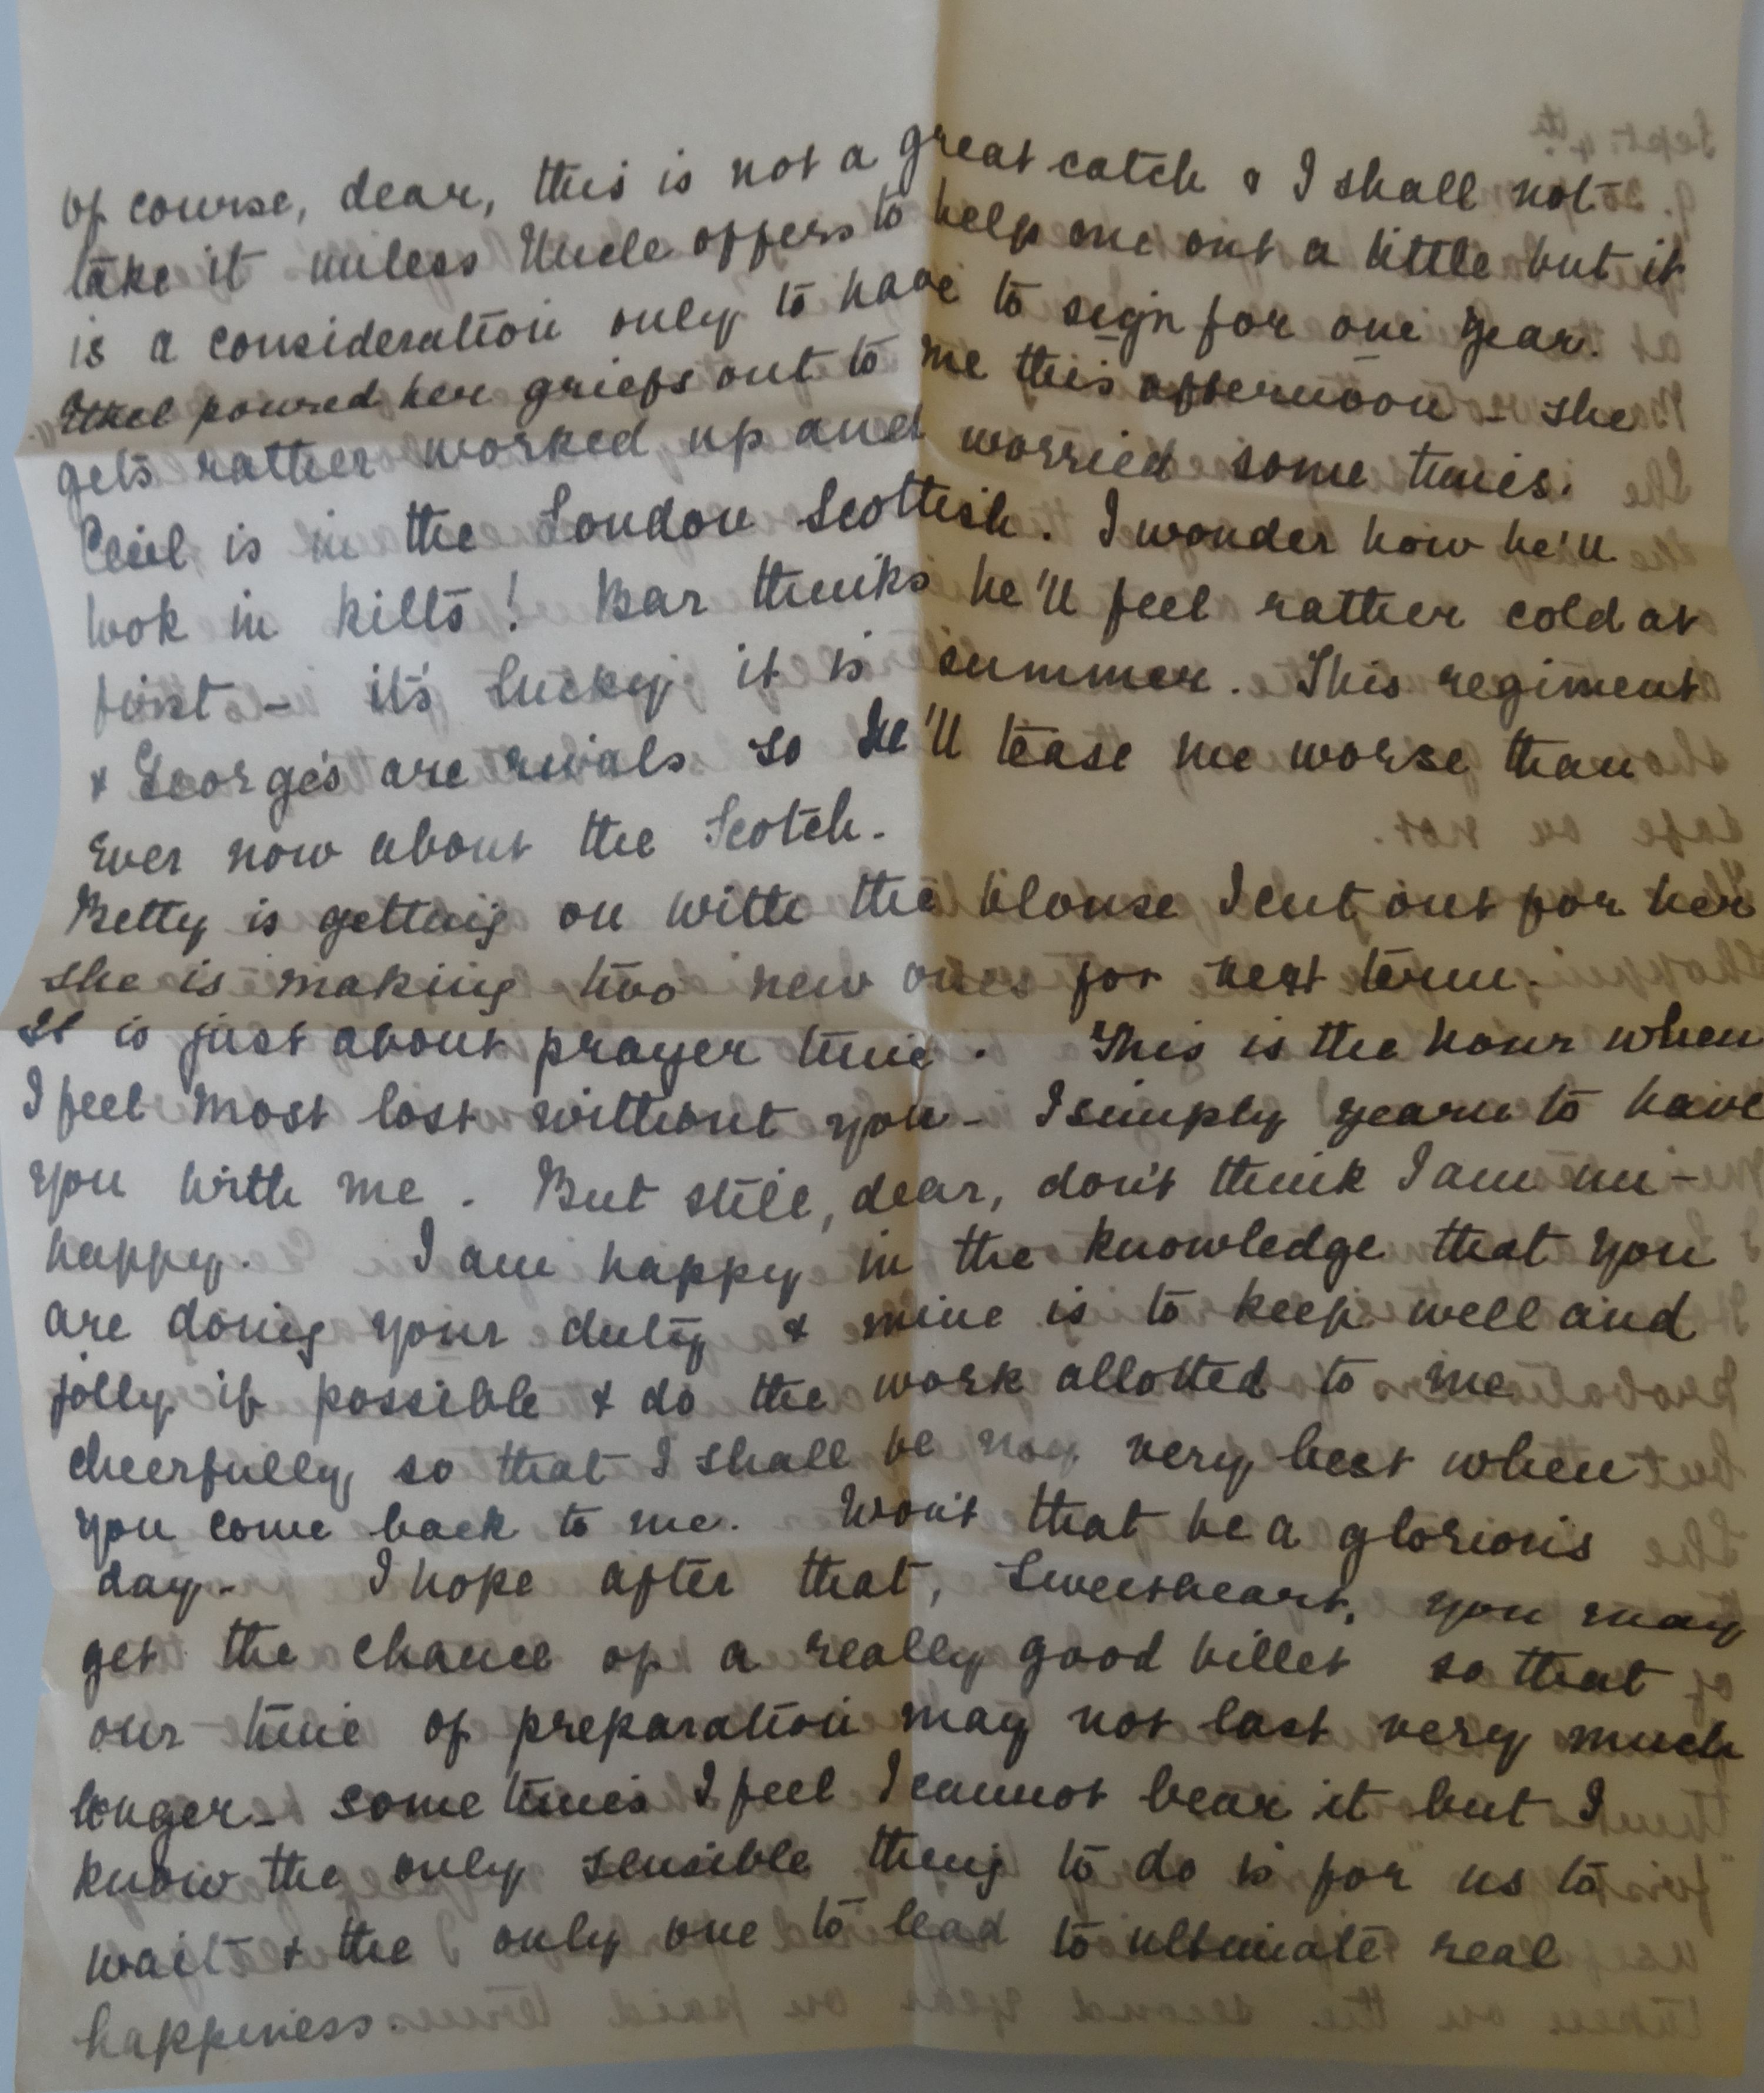 Of course, dear, this is not a great catch & I shall not
take it unless Uncle offers to help me out a little but it
is a consideration only to have to sign for one year.
Ethel poured her griefs out to me this afternoon - she
gets rather worked up and worried some times.
Cecil is in the London Scottish. I wonder how he'll
look in kilts! Bar thinks he'll feel rather cold at
first - it's lucky it is summer. This regiment
& George's are rivals so he'll tease me worse than
ever now about the Scotch.
Betty is getting on with the blouse I cut out for her
she is making two new ones for next term.
It is just about prayer time. This is the hour when
I feel most lost without you - I simply yearn to have
you with me. But still, dear, don't think I am un-
happy. I am happy in the knowledge that you
are doing your duty & mine is to keep well and
jolly if possible & do the work allotted to me
cheerfully so that I shall be my very best when
you come back to me. Won't that be a glorious
day - I hope after that, Sweetheart, you may
get the chance of a really good billet so that
our time of preparation may not last very much
longer - some times I feel I cannot bear it but I
know the only sensible thing to do is for us to
wait & the only one to lead to ultimate real
happiness.